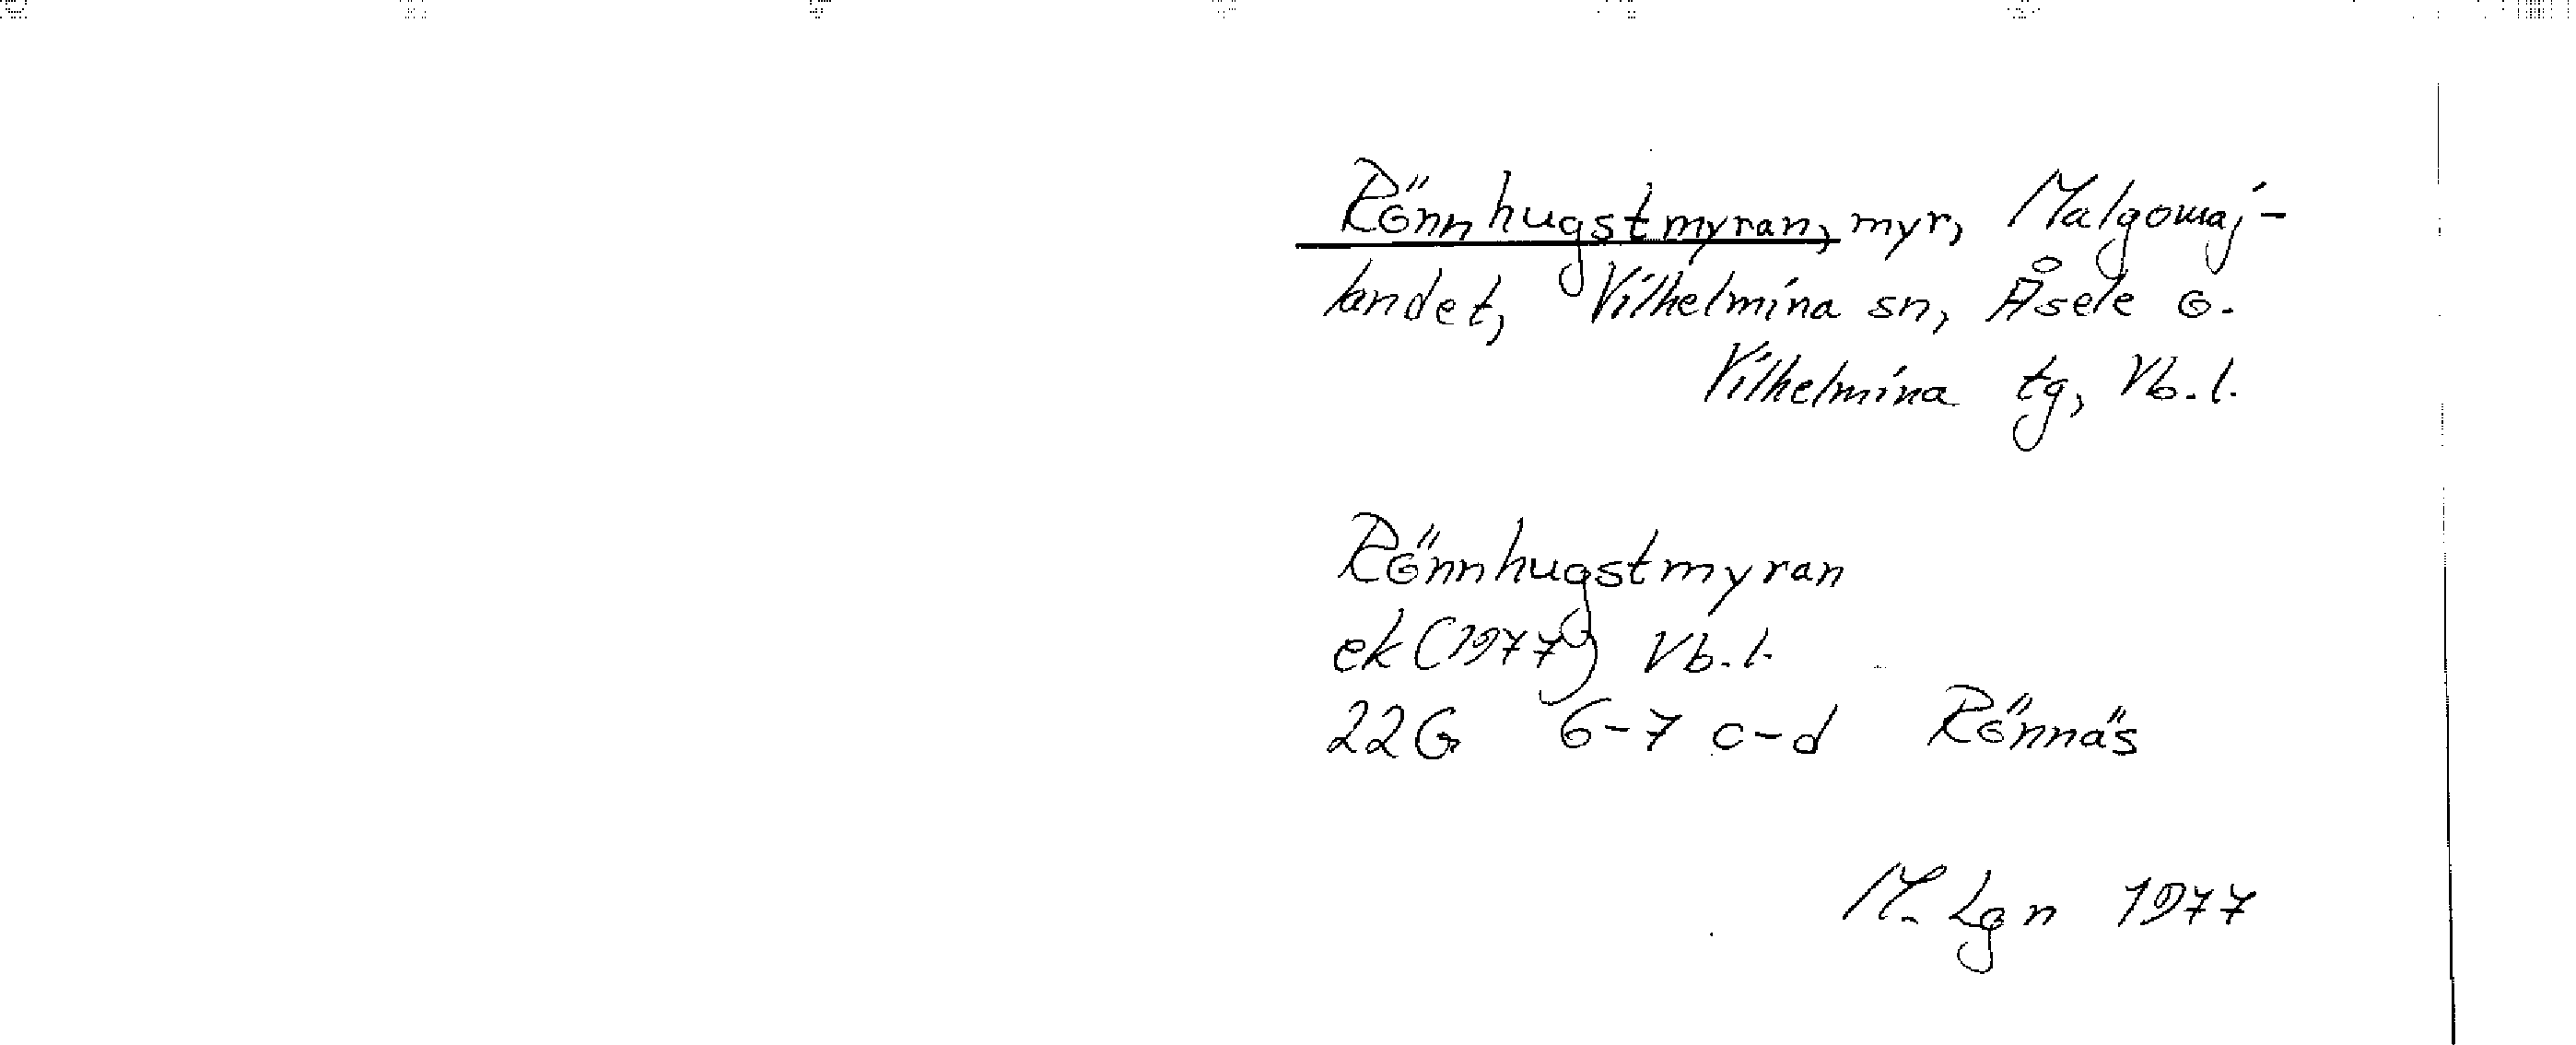 Rönnhugstmyran, myr, Malgomaj-
landet, Vilhelmina sn, Åsele o.
Vilhelmina tg, Vb. l.
Rönnhugstmyran
ek (1977) Vb. l.
22G 6-7 c-d Rönnäs
M. Lgn 1977